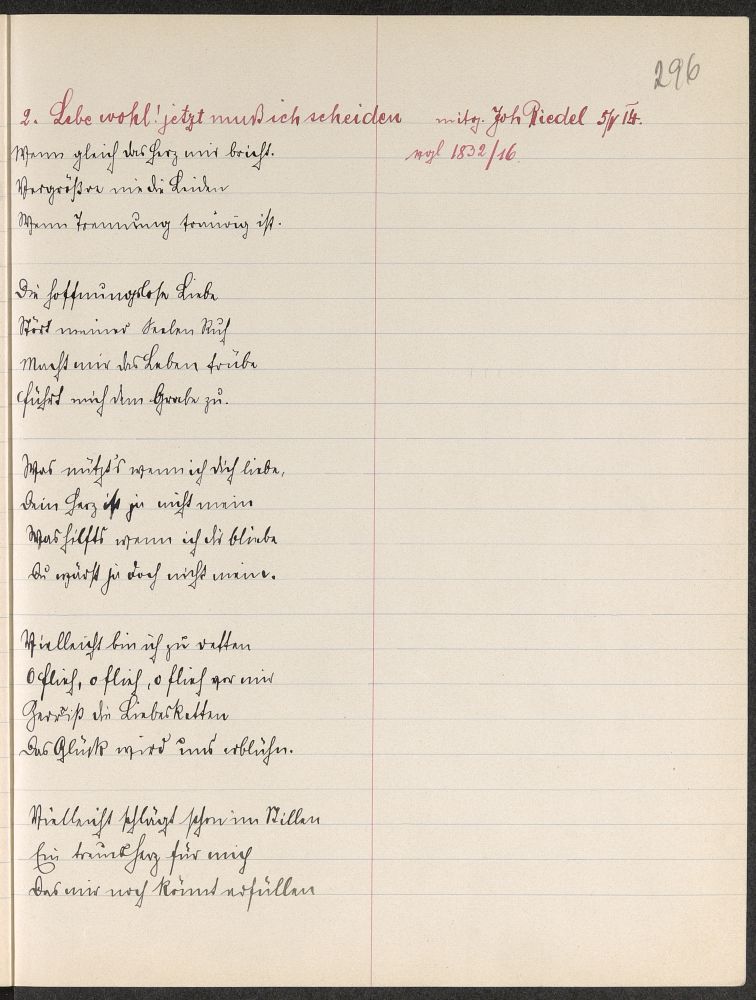 296
2. Lebe wohl! jetzt muß ich scheiden
mitg. Joh Riedel 5/V 14.
vgl 1832/16
Wenn gleich das Herz mir bricht.
Vergrößre nie die Leiden
Wenn Trennung traurig ist.
Die hoffnungslose Liebe
Stört meiner Seelen Ruh
Macht mir das Leben trübe
führt mich dem Grabe zu.
Was nützt's wenn ich dich liebe,
Dein Herz ist ja nicht mein
Was hilfts wenn ich dir bliebe
Du wärst ja doch nicht mein.
Vielleicht bin ich zu retten
O flieh, o flieh, o flieh vor mir
Zerriß die Liebesketten
Das Glück wird uns erblühn.
Vielleicht schlägt schon im Stillen
Ein treues Herz für mich
Das mir noch könnt erfüllen